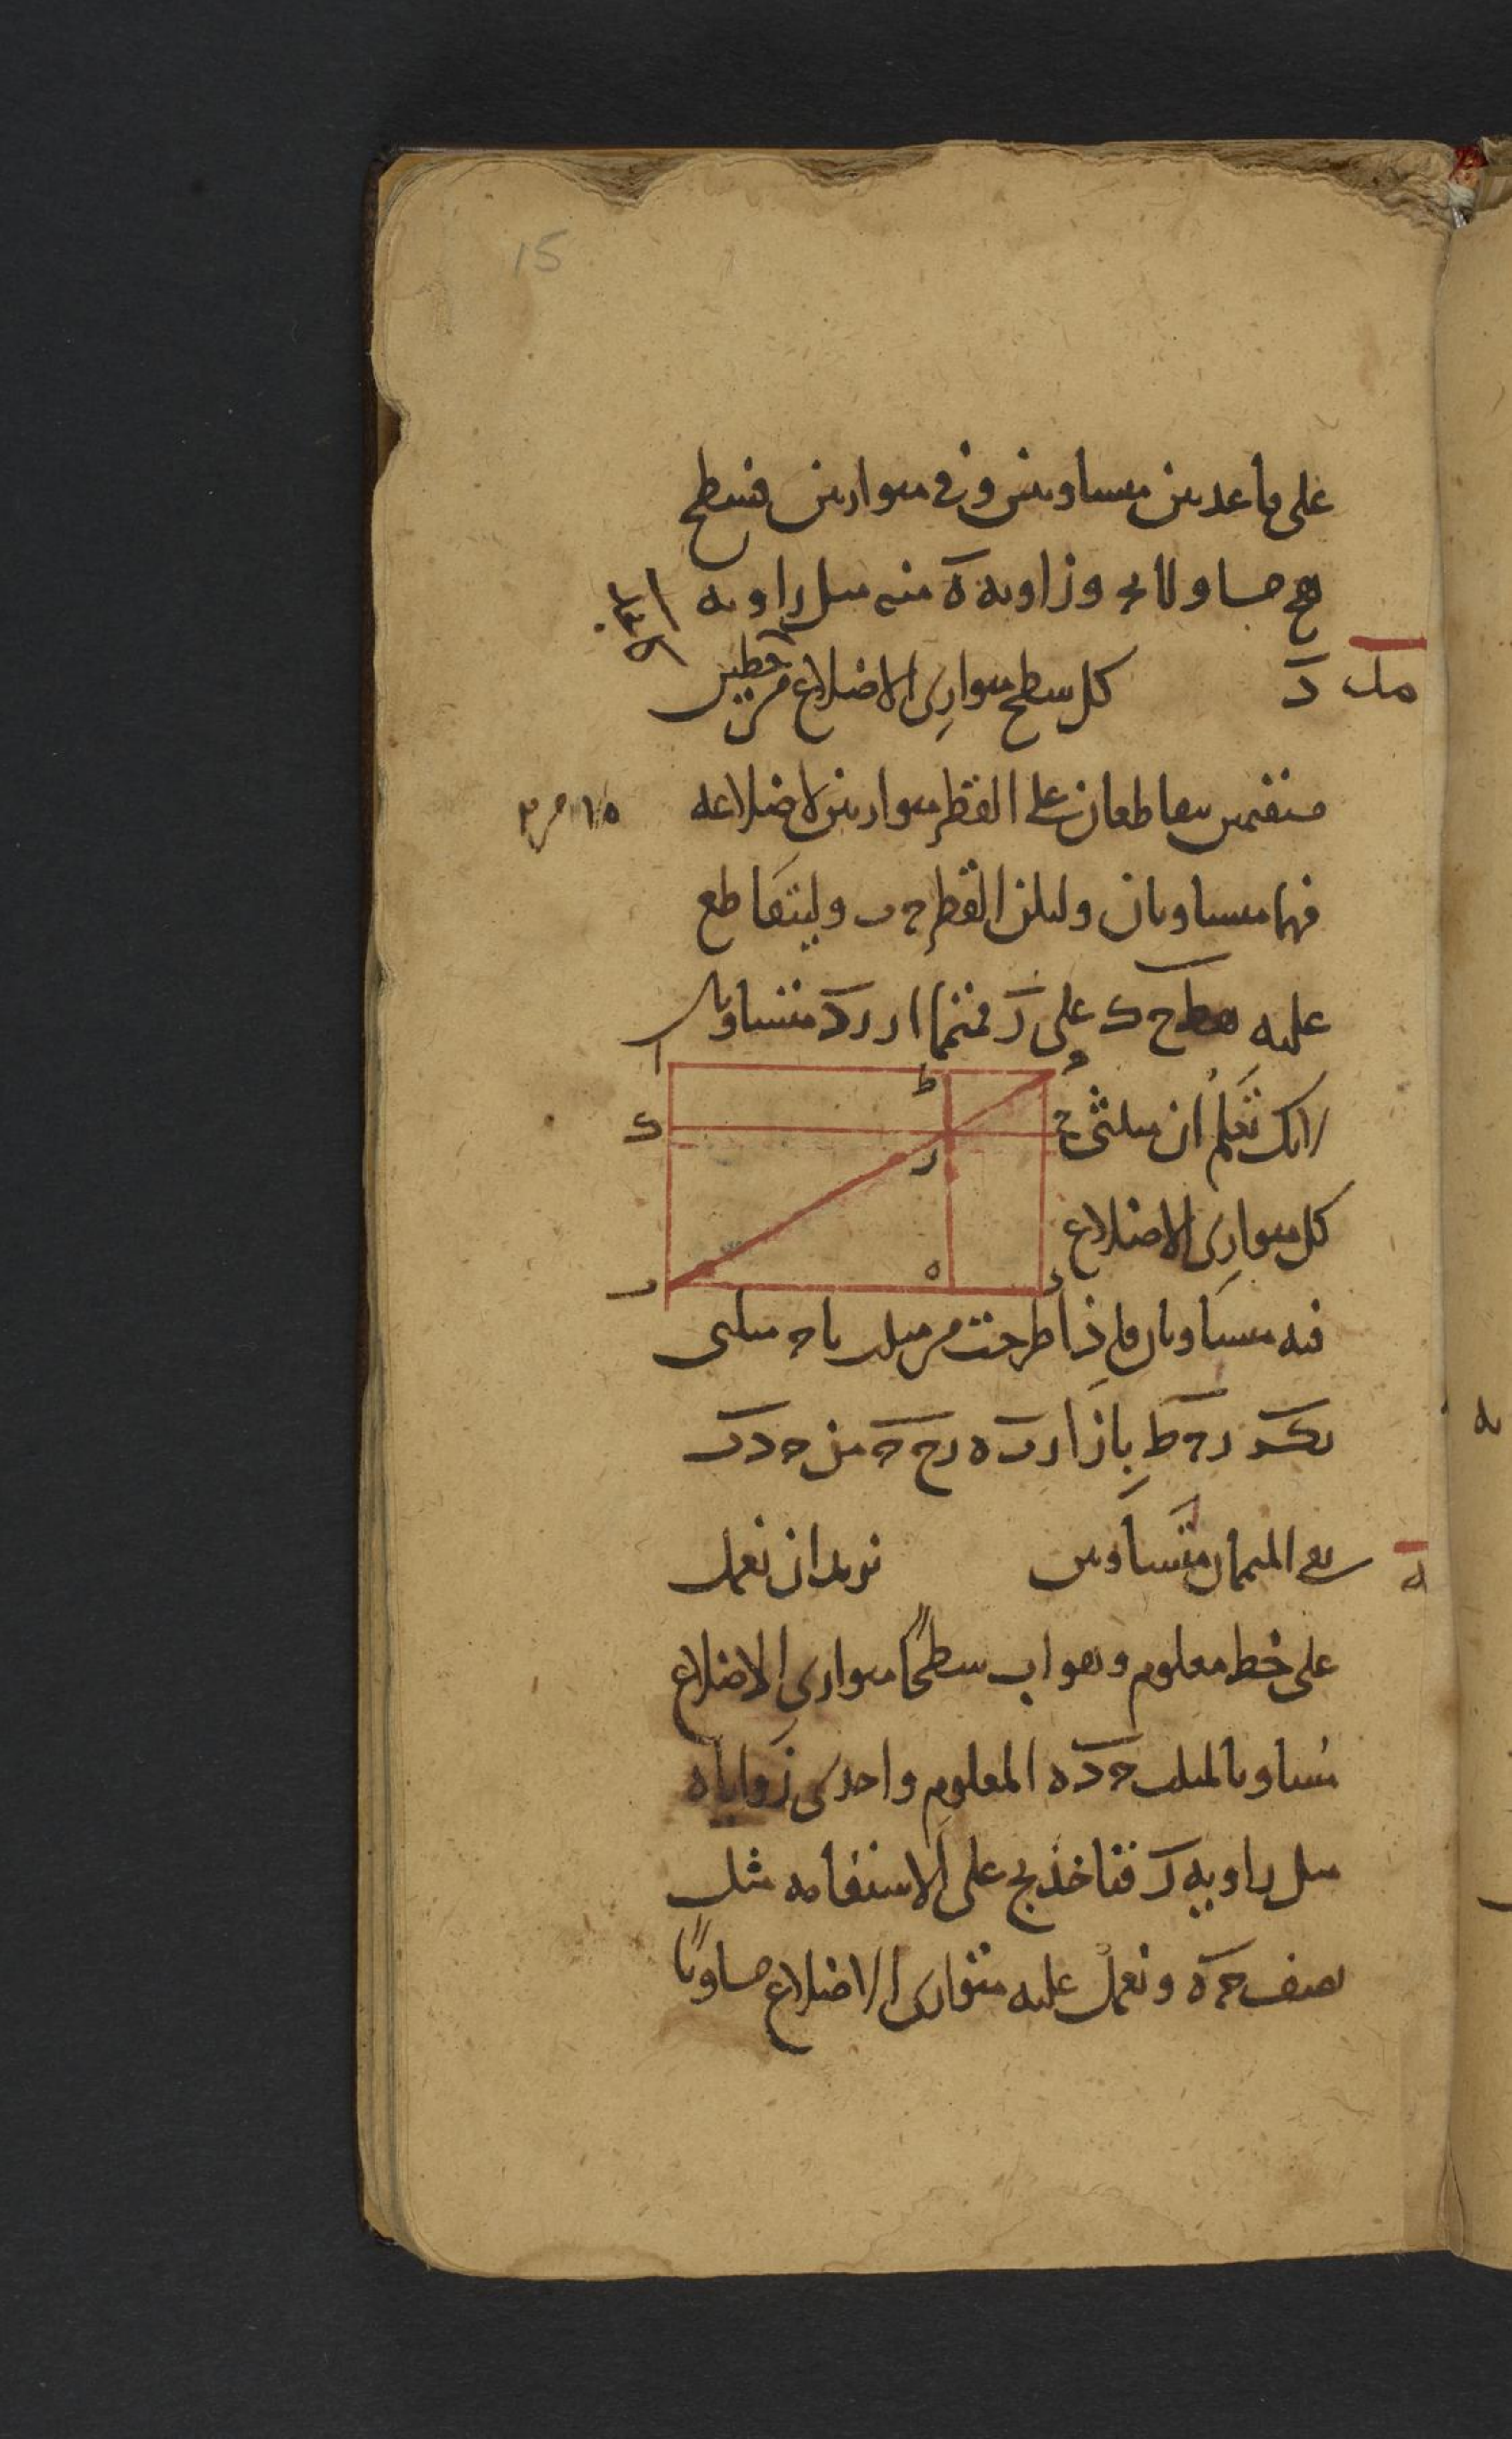 15
على قاعدتين متساويتين وفى متوازيين فسطح
هح مساو لا‍ٮحـ وزاوية ه منه مثل زاوية
مثل د كل سطح متوازى الاضلاع خطين
مستقيمين يتقاطعان على القطر متوازيين لاضلاعه
فهما متساويان وليكن القطر حب وليتقاطع
عليه هط حك على ر فمتمما ار رد متساويان
ا
ط
ح
ك
ر
ب
ه
د
لانك تعلم ان مثلثى
كل متوازى الاضلاع
فيه متساويان فاذا طرحت من مثلث باح مثلثى
بكر رحط بازا ربه رحح من حدب
بقى المتممان متساويين نريد ان نعمل
على خط معلوم وهو اب سطحًا متوازى الاضلاع
مساويا لمثلث حده المعلوم واحدى زواياه
مثل زاوية ر فناخذ بح على الاستقامة مثل
نصف حه ونعمل عليه متوازى الاضلاع مساويًا